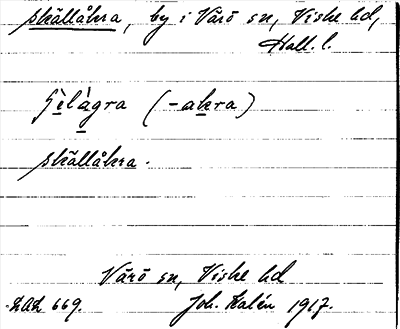 Skällåkra, by i Värö sn, Viske hd,
Hall. l.
(-akra)
Skällåkra.
Värö sn, Viske hd
Joh. Kalén 1917.